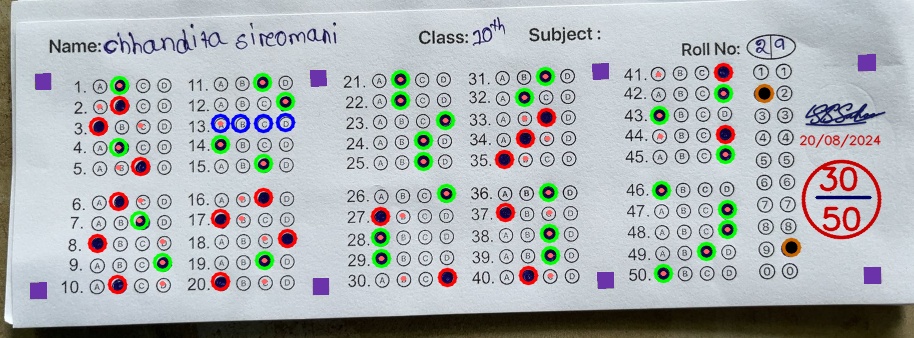 Name: Chhandita sireomani Class: 10th Subject :
Roll No: 2 9
1. A C D
2. A C D
3. B C D
4. A C D
5. A B D
6. A C D
7. A B D
8. B C D
9. A B C
10. A C D
11. A B D
12. A B C
13. A B C D
14. B C D
15. A B D
16. A B D
17. B C D
18. A B C
19. A B D
20. B C D
21. A C D
22. A C D
23. A B C
24. A B D
25. A B D
26. A B C
27. B C D
28. B C D
29. B C D
30. A B C
31. A B D
32. A C D
33. A B D
34. A C D
35. B C D
36. A B D
37. B C D
38. A B D
39. A B D
40. A C D
41. A B C
42. A B C
43. B C D
44. A B C
45. A B C
46. B C D
47. A B C
48. A B C
49. A B D
50. B C D
1 1
2
3 3
4 4
5 5
6 6
7 7
8 8
9
0 0
20/08/2024
30
50